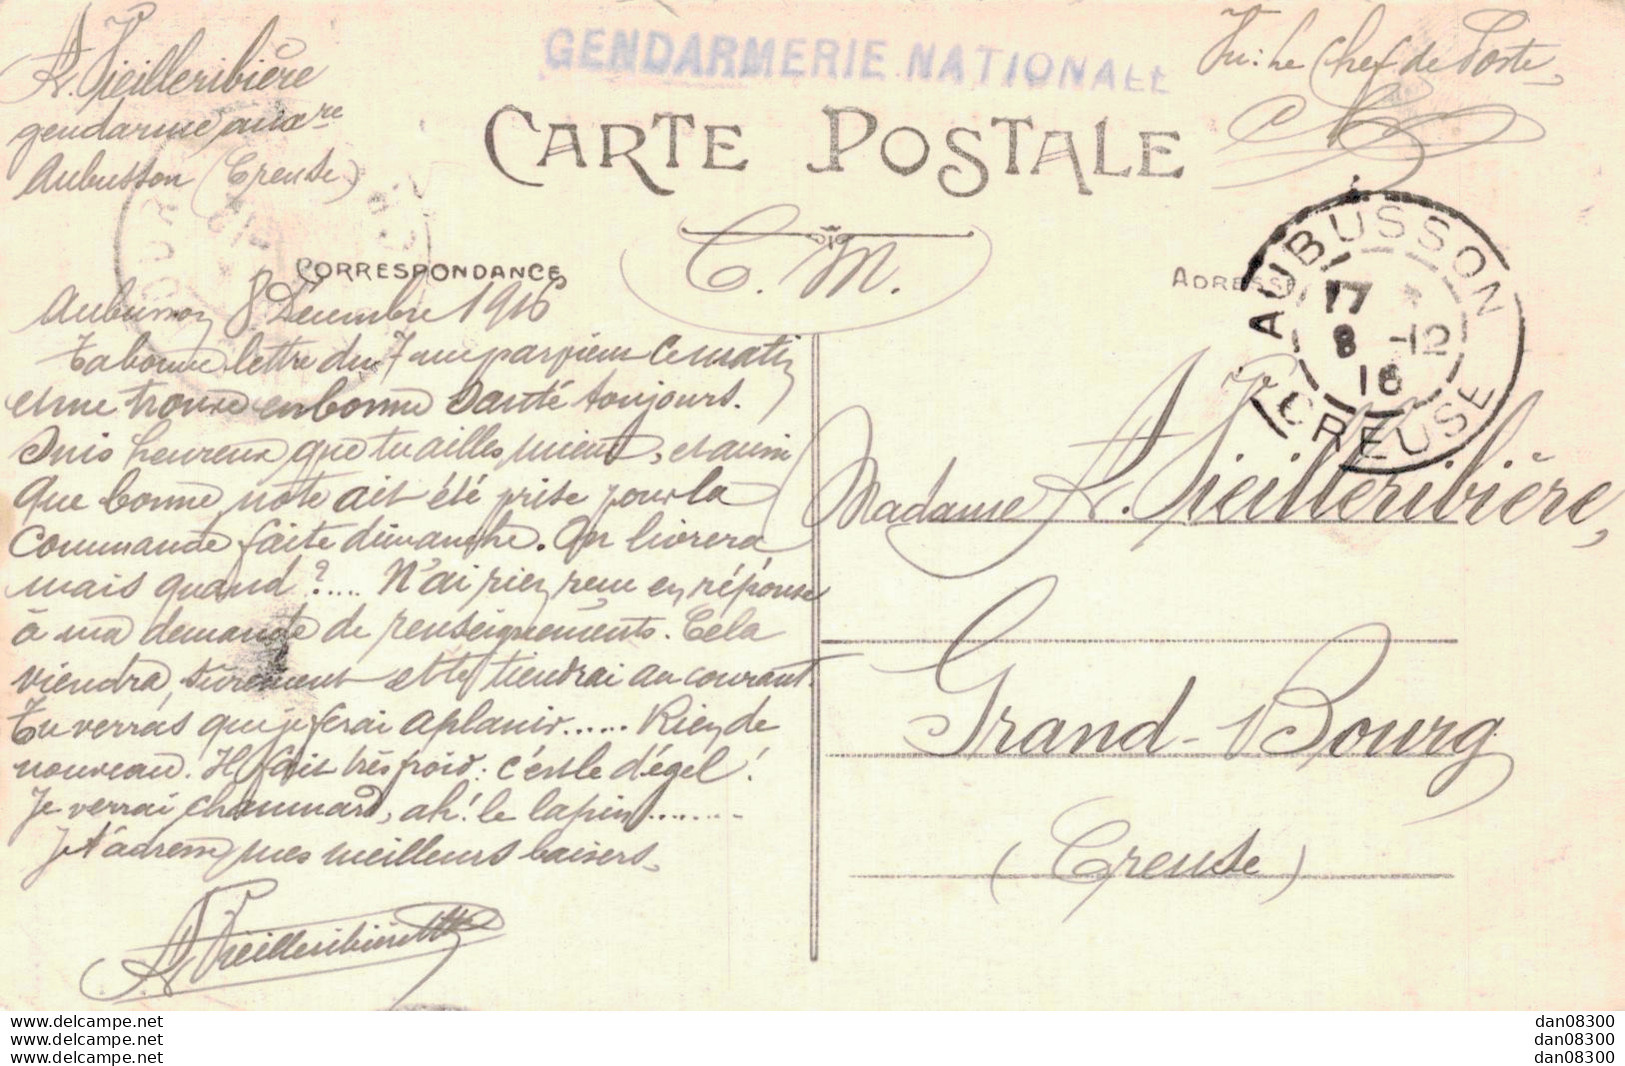 A. Vieilleribière
gendarme auxre
Aubusson (Creuse)
GENDARMERIE NATIONALE
Vu: Le Chef de Poste,
CARTE POSTALE
C. M.
CORRESPONDANCE
ADRESSE
AUBUSSON
17
8 -12
16
CREUSE
Aubusson 8 Décembre 1916
Ta bonne lettre du 7 me parvient ce matin
et me trouve en bonne santé toujours.
Suis heureux que tu ailles mieux, et aussi
que bonne note ait été prise pour la
commande faite dimanche. On livrera
mais quand ?.... N'ai rien reçu en réponse
à ma demande de renseignements. Cela
viendra surement et te tiendrai au courant.
Tu verras que je ferai aplanir...... Rien de
nouveau. Il fait très froid: c'est le dégel!
Je verrai Chaumard, ah! le lapin........
Je t'adresse mes meilleurs baisers.
A. Vieilleribière
Madame A. Vieilleribière,
Grand-Bourg
(Creuse)
www.delcampe.net
www.delcampe.net
www.delcampe.net
dan08300
dan08300
dan08300